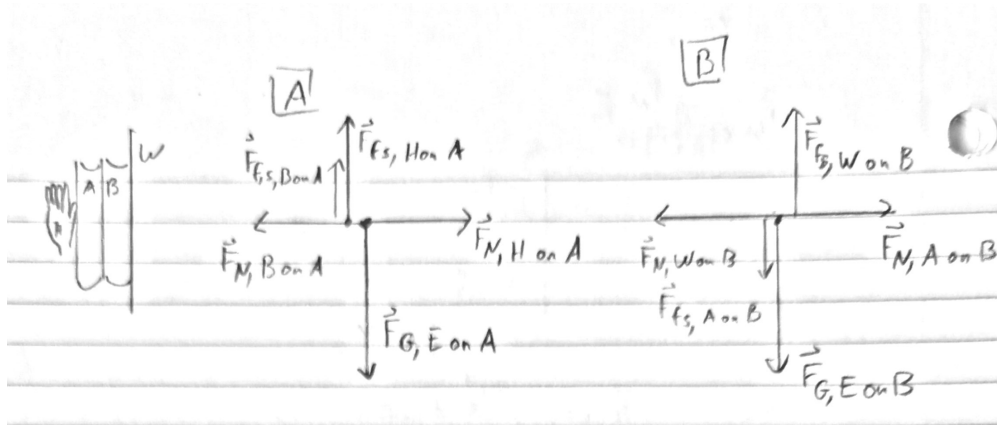 A
B
W
A B
H
F⃗ fs, H on A
F⃗ fs, B on A
F⃗ N, B on A
F⃗ N, H on A
F⃗ G, E on A
F⃗ fs, W on B
F⃗ N, W on B
F⃗ N, A on B
F⃗ fs, A on B
F⃗ G, E on B